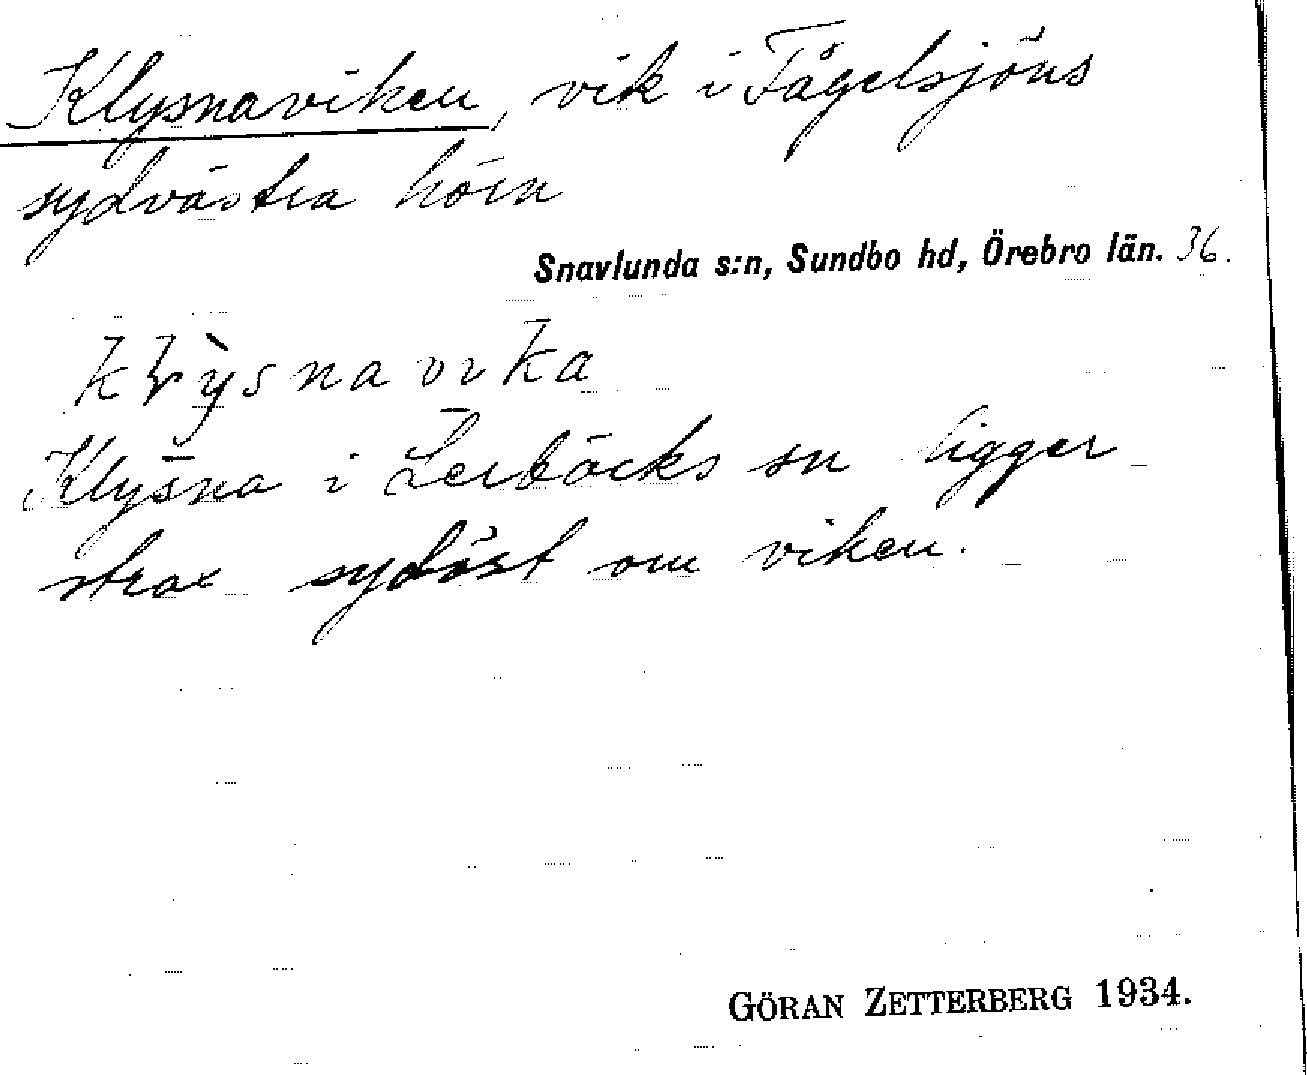 Klysnaviken, vik i Fågelsjöns
sydvästra hörn
Snavlunda s:n, Sundbo hd, Örebro län. 36.
klỳsnavika
Klysna i Lerbäcks sn ligger
strax sydöst om viken.
GÖRAN ZETTERBERG 1934.